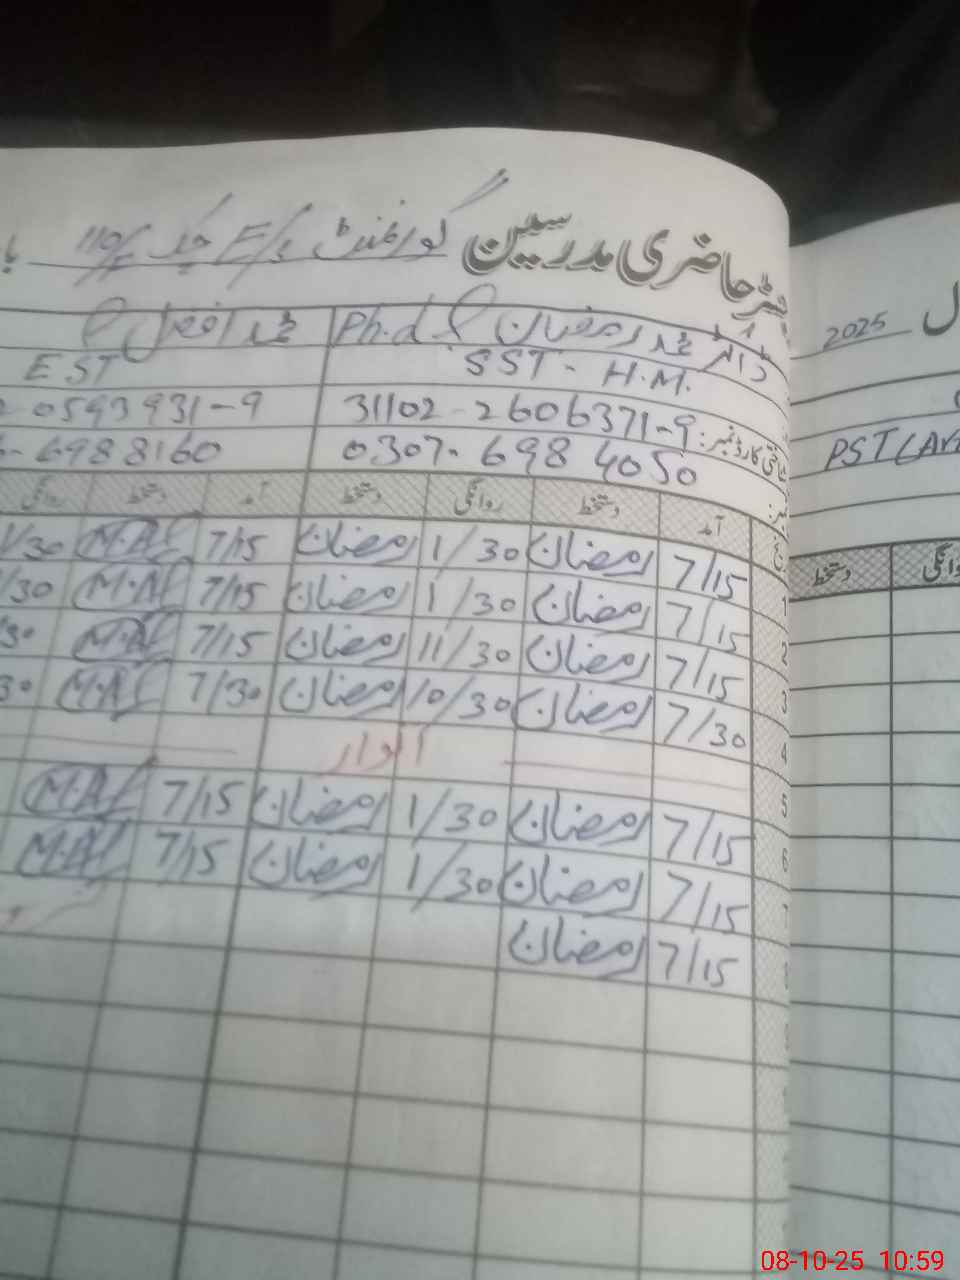 حاضری مدرسین گورنمنٹ
2025
ڈاکٹر محمد رمضان Ph.d محمد افضل
SST - H.M. EST
PST (
31102-2606371-9 0593931-9
0307-6984050 6988160
آمد دستخط روانگی دستخط آمد دستخط روانگی
دستخط
1 7/15 رمضان 1/30 رمضان 7/15 M.Af /30
2 7/15 رمضان 1/30 رمضان 7/15 M.Af /30
3 7/15 رمضان 11/30 رمضان 7/15 M.Af 30
4 7/30 رمضان 10/30 رمضان 7/30 M.Af 30
5 اتوار
6 7/15 رمضان 1/30 رمضان 7/15 M.Af
7 7/15 رمضان 1/30 رمضان 7/15 M.Af
8 7/15 رمضان
08-10-25 10:59